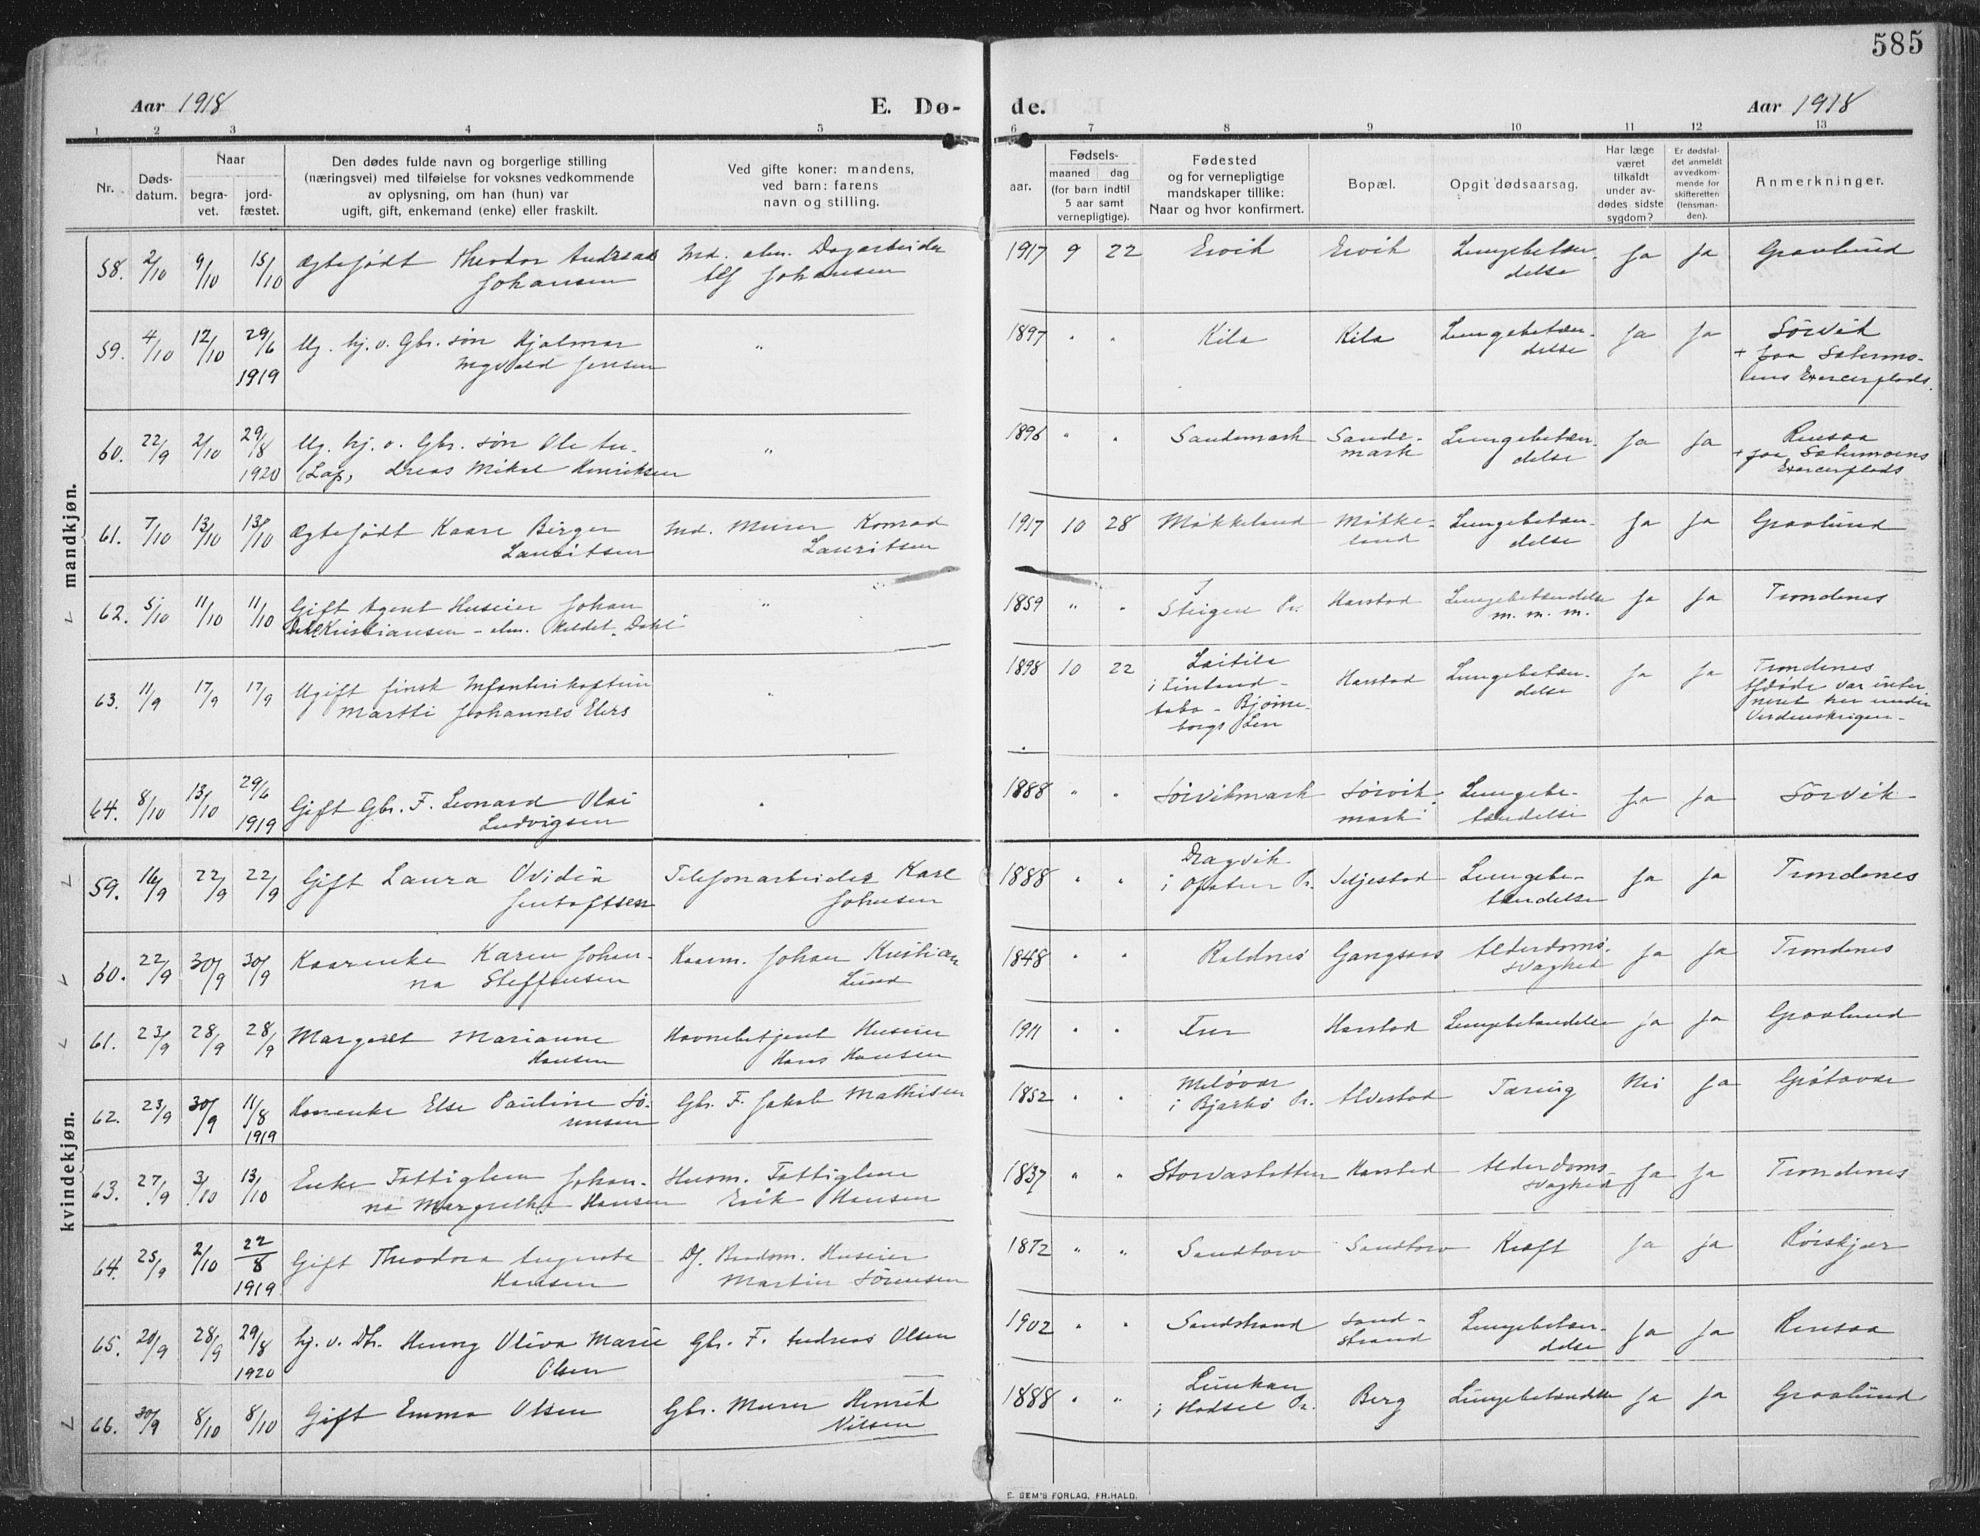 585
Aar 1918 E. Dø- de. Aar 1918
1 2 3 4 5 6 7 8 9 10 11 12 13
Nr.
Døds-
datum.
Naar
begra-
vet.
jord-
fæstet.
Den dødes fulde navn og borgerlige stilling
(næringsvei) med tilføielse for voksnes vedkommende
av oplysning, om han (hun) var
ugift, gift, enkemand (enke) eller fraskilt.
Ved gifte koner: mandens,
ved barn: farens
navn og stilling.
Fødsels-
aar.
maaned dag
(for barn indtil
5 aar samt
vernepligtige).
Fødested
og for vernepligtige
mandskaper tillike:
Naar og hvor konfirmert.
Bopæl.
Opgit dødsaarsag.
Har læge
været
tilkaldt
under av-
dødes sidste
sygdom?
Er dødsfal-
det anmeldt
av vedkom-
mende for
skifteretten
(lensman-
den).
Anmerkninger.
mandkjøn.
58. 2/10 9/10 15/10 Ægtefødt Theodor Andreas Md. alm. Dagarbeider 1917 9 22 Ervik Ervik Lungebetæn- Ja Ja Graalund
Johansen Alf Johansen delse
59. 4/10 12/10 29/6 Ug. hj. v. Gbr. søn Hjalmar " 1897 " " Kila Kila Lungebetæn- Ja Ja Sørvik
1919 Ingvald Jensen delse + paa Setermo-
ens Exercerplads.
60. 22/9 2/10 29/8 Ug. hj. v. Gbr. søn Ole An- " 1896 " " Sandemark Sande- Lungebetæn- Ja Ja Rensaa
1920 (Lap) dreas Mikal Henriksen mark delse + paa Setermoens
Exercerplads
61. 7/10 13/10 13/10 Ægtefødt Kaare Birger Md. Murer Konrad 1917 10 28 Møkkeland Møkke- Lungebetæn- Ja Ja Graalund
Lauritsen Lauritsen land delse
62. 5/10 11/10 11/10 Gift Agent Huseier Johan " 1859 " " Steigen Pr. Harstad Lungebetændelse Ja Ja Trondenes
Kristiansen - alm. kaldet "Dahl" m. m. m.
63. 11/9 17/9 17/9 Ugift finsk Infanterikaptein " 1898 10 22 Laitila Harstad Lungebetæn- Ja Ja Trondenes
Martti Johannes Elers i Finland - delse Afdøde var inter
Aabo - Bjørne- neret her under
borgs Len Verdenskrigen -
64. 8/10 13/10 29/6 Gift Gbr. F. Leonard Olai " 1888 " " Sørvikmark Sørvik Lungebe- Ja Ja Sørvik
1919 Ludvigsen mark tændelse
kvindekjøn.
59. 16/9 22/9 22/9 Gift Laura Ovidia Telefonarbeider Karl 1888 " " Dragvik Seljestad Lungebe- Ja Ja Trondenes
Jentoftsen Johnsen i Ofoten Pr. tændelse
60. 22/9 30/9 30/9 Kaarenke Karen Johan- Kaarm. Johan Kristian 1848 " " Roldnes Gangsaas Alderdoms- Ja Ja Trondenes
na Steffensen Lund svaghed
61. 23/9 28/9 28/9 Margaret Marianne Havnebetjent Huseier 1911 " " Harstad Lungebetændelse Ja Ja Graalund
Hansen Hans Hansen
62. 23/9 30/9 11/8 Kaarenke Else Pauline Sø- Gbr. F. Jakob Mathisen 1852 " " Meløvær Alvestad Tæring Nei Ja Grøtavær
1919 rensen i Bjarkø Pr.
63. 27/9 3/10 13/10 Enke Fattiglem Johan- Husm. Fattiglem 1837 " " Storvasletten Harstad Alderdoms- Ja Ja Trondenes
na Margrethe Hansen Erik Hansen svaghed
64. 25/9 2/10 22/8 Gift Theodora Augusta Df. Huseier 1872 " " Sandtorv Sandtorv Kræft Ja Ja Rørskjær
1919 Hansen Martin Sørensen
65. 20/9 28/9 29/8 hj. v. Dtr. Henny Oliva Marie Gbr. F. Andreas Olsen 1902 " " Sandstrand Sand- Lungebetæn- Ja Ja Rensaa
1920 Olsen strand delse
66. 30/9 8/10 8/10 Gift Emma Olsen Gbr. Murer Henrik 1888 " " Berg Lungebetændelse Ja Ja Graalund
Nilsen i Hadsel Pr.
E. SEM'S FORLAG, FR.HALD.